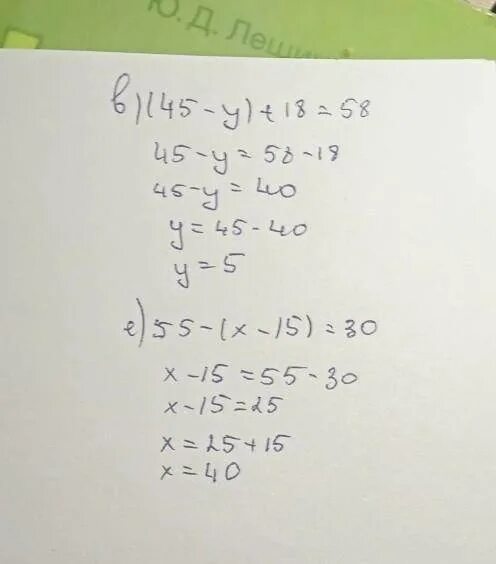 Ю. Д. Лешин
в) (45 - y) + 18 = 58
45 - y = 58 - 18
45 - y = 40
y = 45 - 40
y = 5
е) 55 - (x - 15) = 30
x - 15 = 55 - 30
x - 15 = 25
x = 25 + 15
x = 40